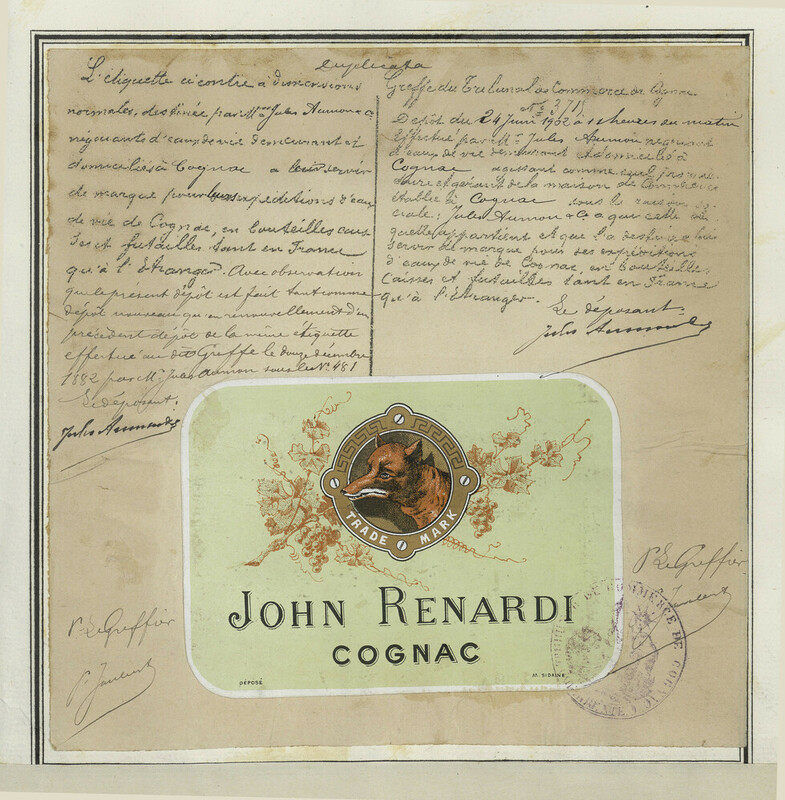 Duplicata
L'étiquette ci contre à dimensions
normales, destinée par Mr Jules Aumon & Cie
négociants d'eaux de vie demeurant et
domiciliés à Cognac a leur servir
de marque pour leurs expéditions d'eau
de vie de Cognac, en bouteilles cais
ses et futailles tant en France
qu'à l'Etranger. Avec observation
que le présent dépôt est fait tant comme
dépôt nouveau qu'en renouvellement d'un
précédent dépôt de la même étiquette
effectué au dit Greffe le douze décembre
1882 par Mr. Jules Aumon sous le No. 481
Le déposant.
Jules Aumon & Cie
Greffe du Tribunal de Commerce de Cognac
No 3715
Dépôt du 24 Juin 1902 à heures du matin
Effectué par Mr. Jules Aumon négociant
d'eaux de vie demeurant et domicilié à
Cognac agissant comme seul proprié
taire et gérant de la maison de Commerce
établie à Cognac sous la raison so
ciale: Jules Aumon & Co. a qui cette éti
quette appartient et que l'a destinée à lui
servir de marque pour ses expéditions
d'eaux de vie de Cognac, en bouteilles
Caisses et futailles tant en France
qu'à l'Etranger.
Le déposant.
Jules Aumon & Cie
TRADE MARK
JOHN RENARDI
COGNAC
DÉPOSÉ
P. Le Greffier
P. Le Greffier
DE COMMERCE DE COGNAC